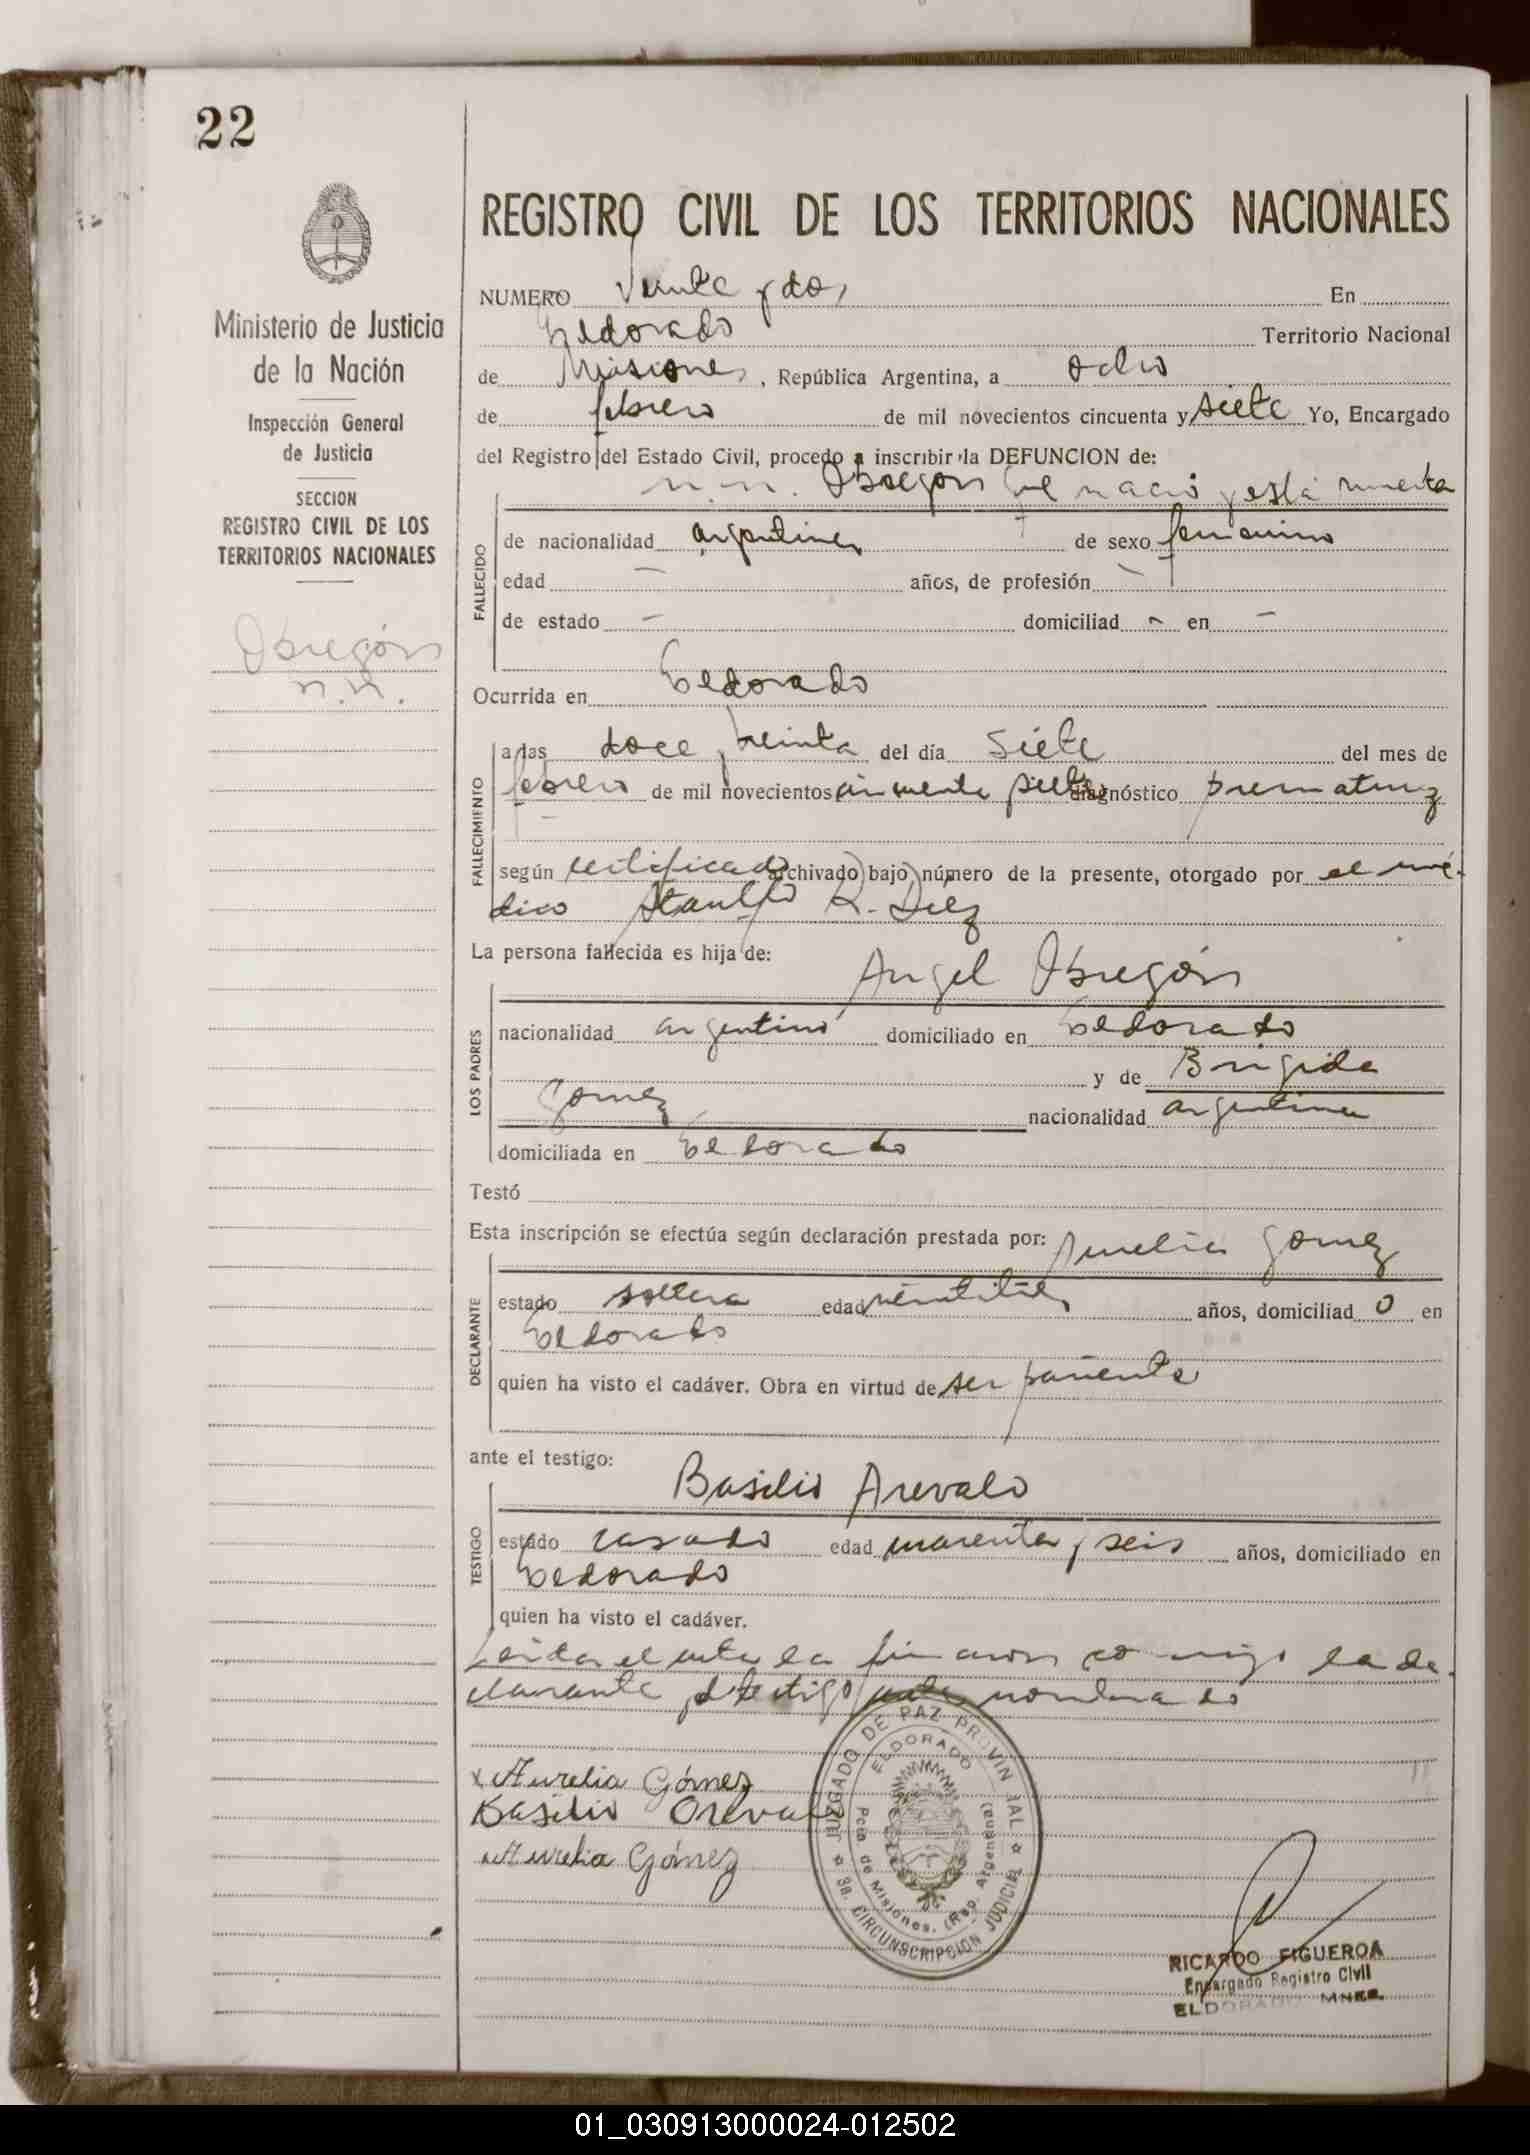 22
Ministerio de Justicia
de la Nación
Inspección General
de Justicia
SECCION
REGISTRO CIVIL DE LOS
TERRITORIOS NACIONALES
Obregón
n.n.
REGISTRO CIVIL DE LOS TERRITORIOS NACIONALES
NUMERO Veinte y dos En
Eldorado Territorio Nacional
de Misiones, República Argentina, a ocho
de febrero de mil novecientos cincuenta y siete Yo, Encargado
del Registro del Estado Civil, procedo a inscribir la DEFUNCION de:
n.n. Obregon que nació y está muerta
FALLECIDO
de nacionalidad argentina de sexo femenino
edad — años, de profesión —
de estado — domiciliad - en —
Ocurrida en Eldorado
FALLECIMIENTO
a las doce y treinta del día siete del mes de
febrero de mil novecientos cincuenta y siete diagnóstico prematurez
según certificado archivado bajo número de la presente, otorgado por el mé-
dico R. Diez
La persona fallecida es hija de:
Angel Obregón
LOS PADRES
nacionalidad argentino domiciliado en Eldorado
y de Brígida
Gomez nacionalidad argentina
domiciliada en Eldorado
Testó
Esta inscripción se efectúa según declaración prestada por: Aurelia Gomez
DECLARANTE
estado soltera edad veintitres años, domiciliad o en
Eldorado
quien ha visto el cadáver. Obra en virtud de ser pariente
ante el testigo:
Basilio Arevalo
TESTIGO
estado casado edad cuarenta y seis años, domiciliado en
Eldorado
quien ha visto el cadáver.
Leida el acta la firman conmigo la de-
clarante y el testigo antes nombrado
x Aurelia Gómez
Basilio Orevalo
Aurelia Gómez
JUZGADO DE PAZ PROVINCIAL
3a. CIRCUNSCRIPCION JUDICIAL
ELDORADO
Pcia de Misiones, (Rep. Argentina)
RICARDO FIGUEROA
Encargado Registro Civil
ELDORADO MNES.
01_030913000024-012502